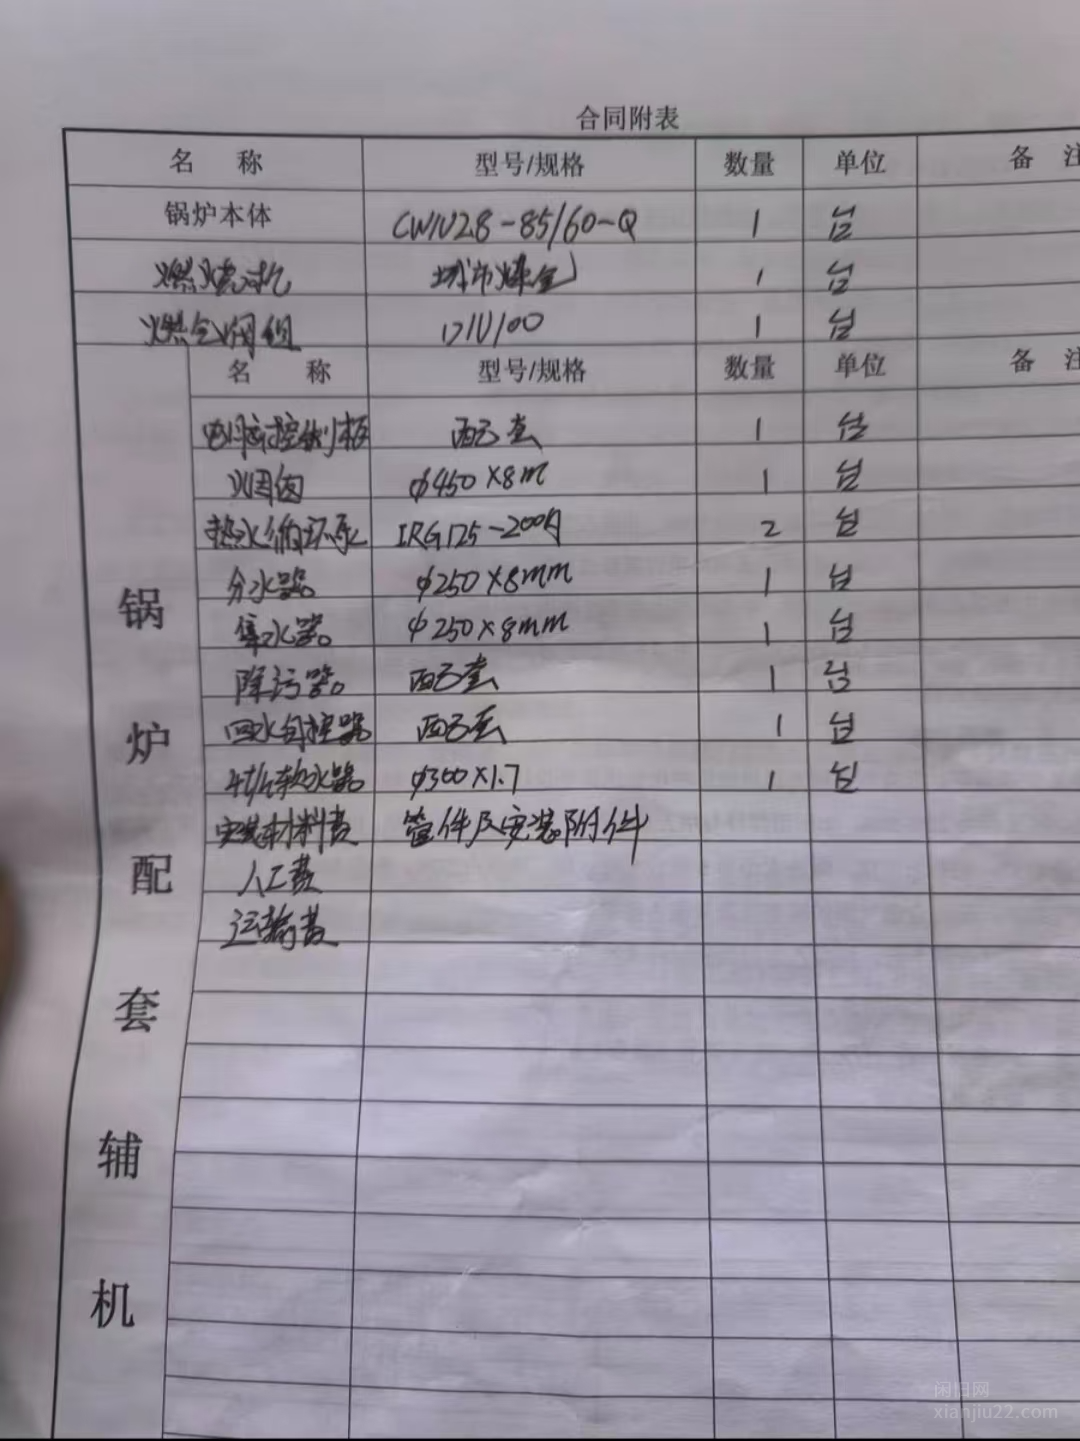 合同附表
名 称 型号/规格 数量 单位 备 注
锅炉本体 CWNV2.8-85/60-Q 1 台
燃烧机 城市燃气 1 台
燃气阀组 DN100 1 台
名 称 型号/规格 数量 单位 备 注
电脑控制板 配套 1 台
烟囱 φ450×8m 1 台
热水循环泵 IRG125-200A 2 台
分水器 φ250×8mm 1 台
集水器 φ250×8mm 1 台
除污器 配套 1 台
回水自控器 配套 1 台
软水器 φ300×1.7 1 台
安装材料费 管件及安装附件
人工费
运输费
锅炉配套辅机
闲旧网
xianjiu22.com